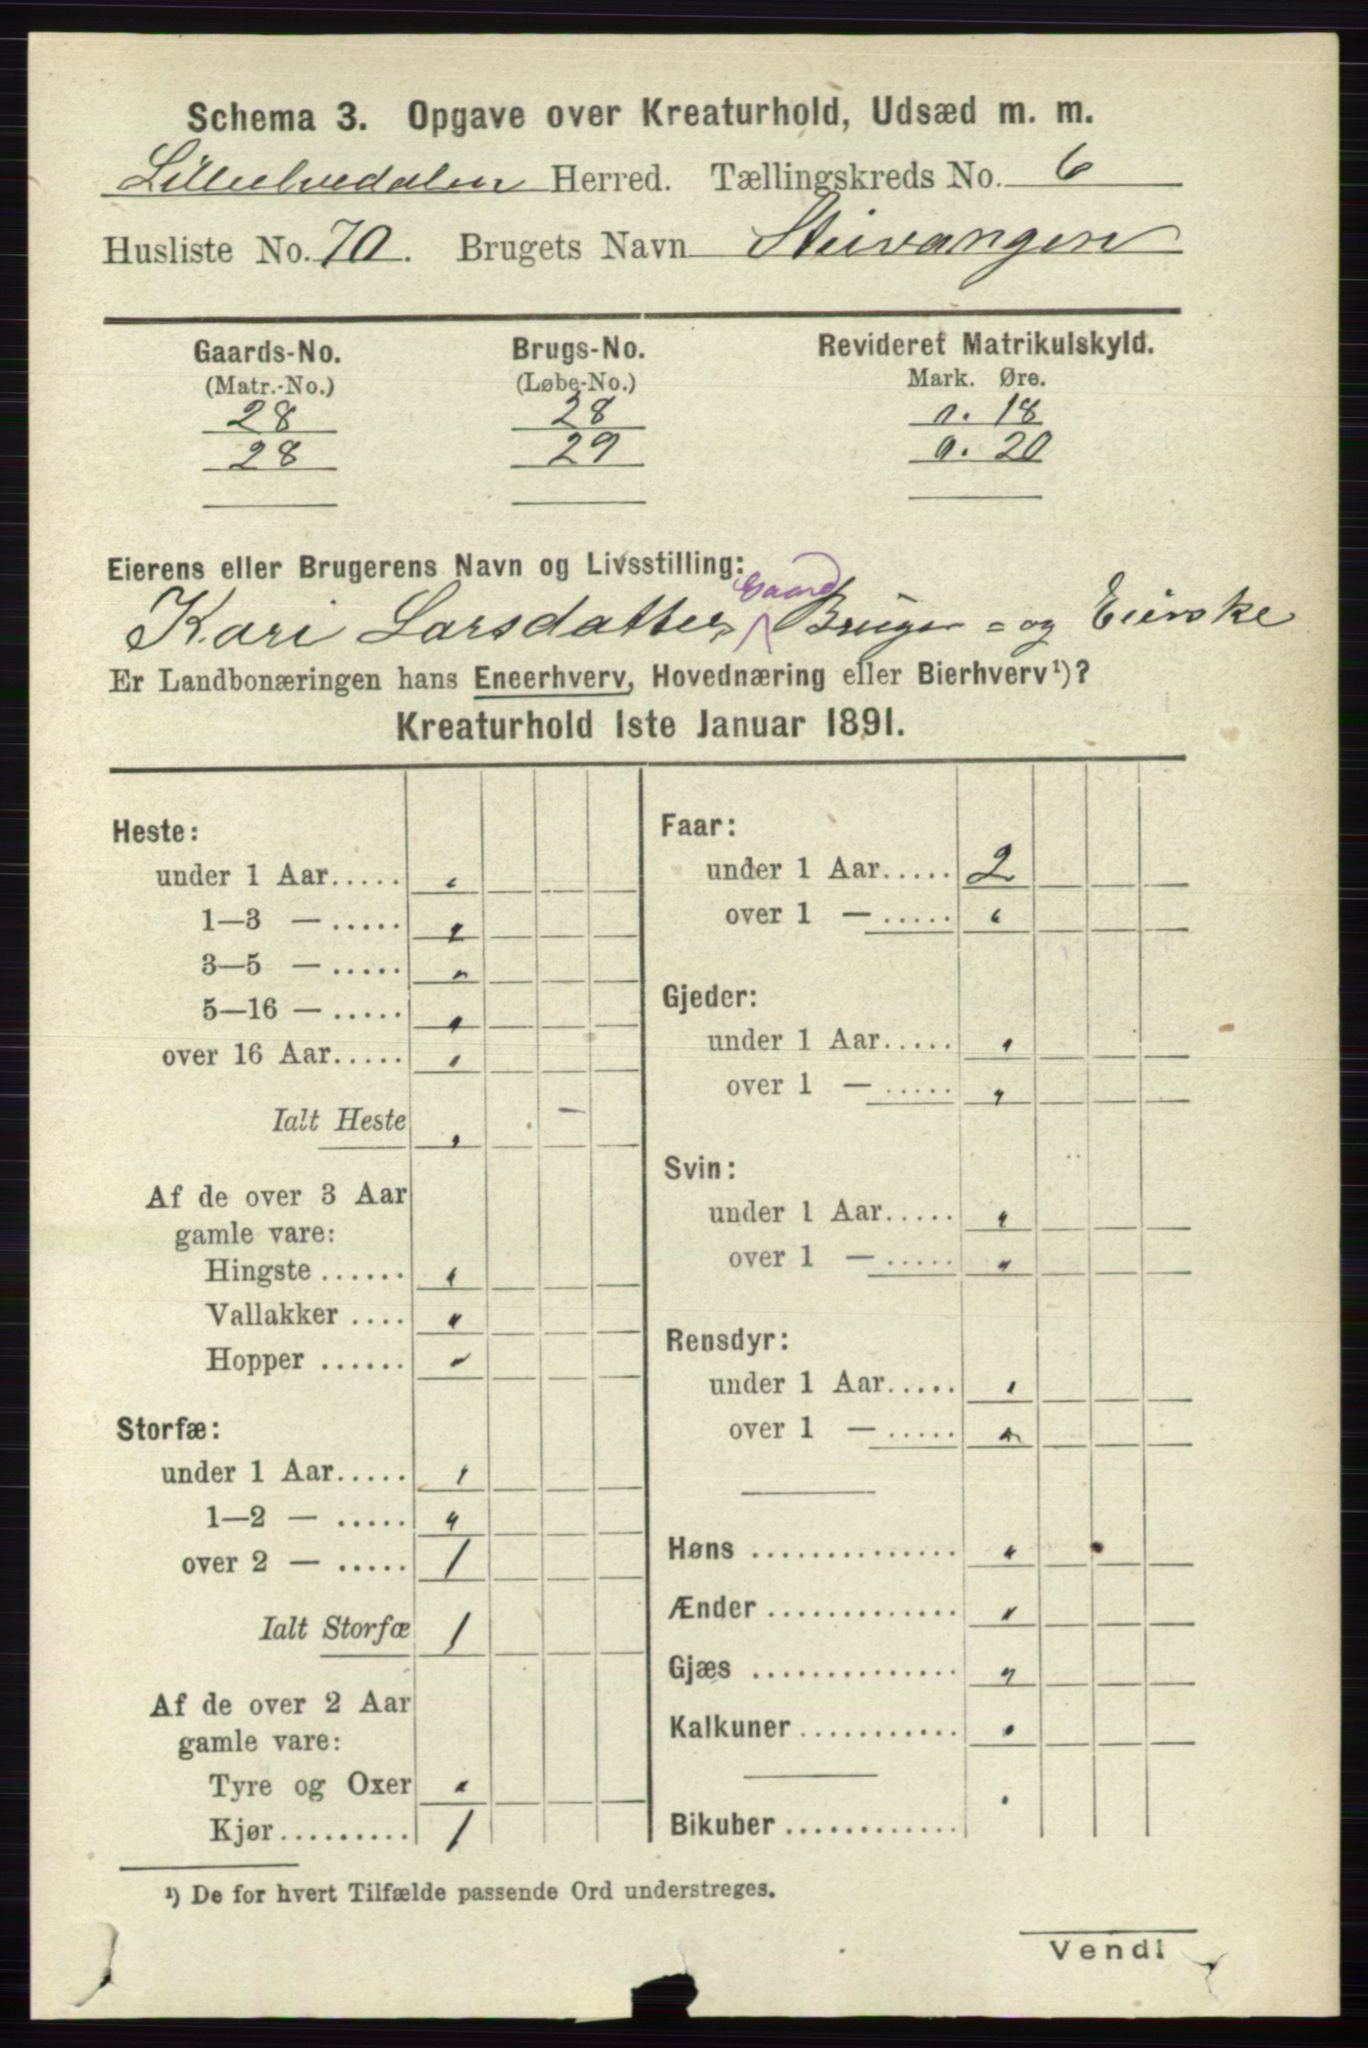 Schema 3. Opgave over Kreaturhold, Udsæd m. m.
Lilleelvedalen Herred. Tællingskreds No. 6
Husliste No. 70. Brugets Navn Steivangen
Gaards-No. Brugs-No. Revideret Matrikulskyld.
(Matr.-No.) (Løbe-No.) Mark. Øre.
28 28 0. 18
28 29 0. 20
Eierens eller Brugerens Navn og Livsstilling:
Kari Larsdatter, Gaard Bruger= og Eierske
Er Landbonæringen hans Eneerhverv, Hovednæring eller Bierhverv¹)?
Kreaturhold 1ste Januar 1891.
Heste:
under 1 Aar.....
1—3 — .....
3—5 — .....
5—16 — .....
over 16 Aar.....
Ialt Heste
Af de over 3 Aar
gamle vare:
Hingste ......
Vallakker ....
Hopper ......
Storfæ:
under 1 Aar.....
1—2 — .....
over 2 — ..... 1
Ialt Storfæ 1
Af de over 2 Aar
gamle vare:
Tyre og Oxer
Kjør.......... 1
Faar:
under 1 Aar..... 2
over 1 — .....
Gjeder:
under 1 Aar.....
over 1 — .....
Svin:
under 1 Aar.....
over 1 — .....
Rensdyr:
under 1 Aar.....
over 1 — .....
Høns ..............
Ænder .............
Gjæs ..............
Kalkuner ...........
Bikuber ............
¹) De for hvert Tilfælde passende Ord understreges.
Vend!